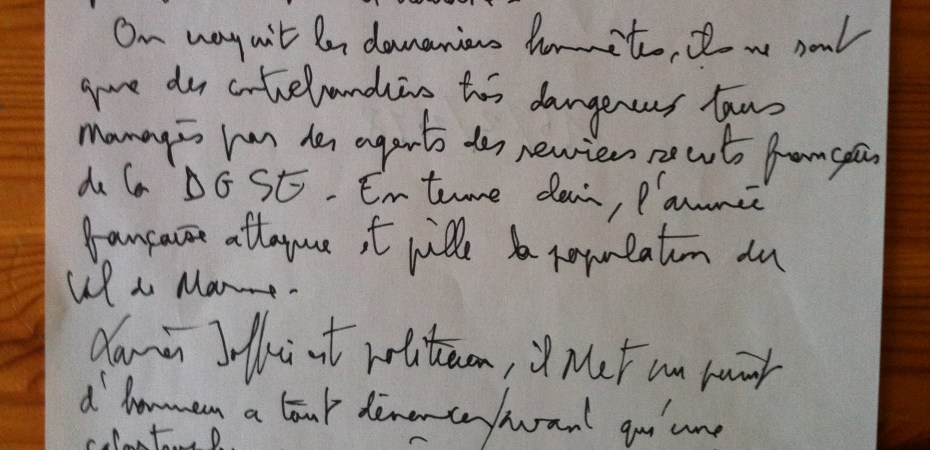 On croyait les douaniers honnêtes, ils ne sont
que des contrebandiers très dangereux tous
Managés par des agents des services secrets français
de la DGSE. En terme clair, l'armée
française attaque et pille la population du
Val de Marne.
Joffrin est politicien, il Met un point
d'honneur a tout dénoncer avant qu'une